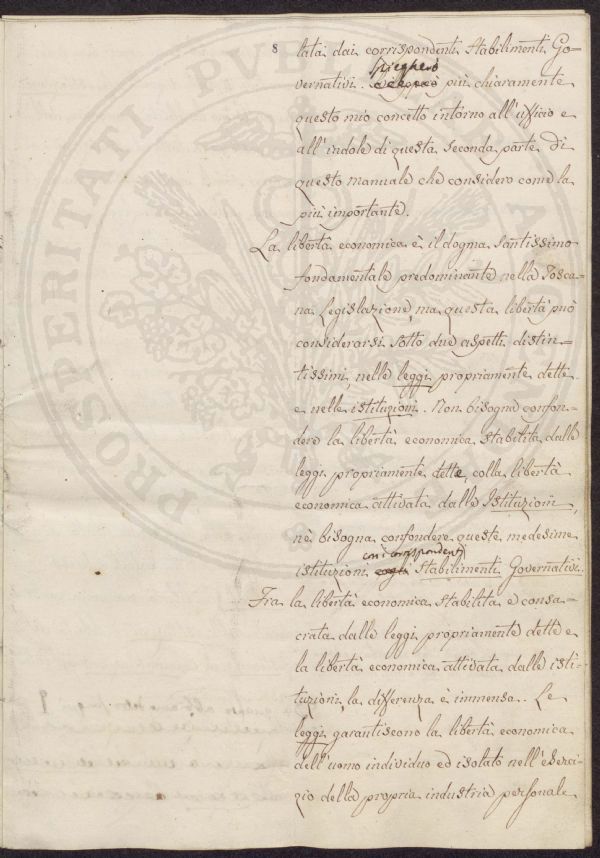 8
tata dai corrispondenti Stabilimenti Go-
vernativi. Spiegherò più chiaramente
questo mio concetto intorno all'ufficio e
all'indole di questa seconda parte di
questo manuale che considero come la
più importante.
La libertà economica è il dogma Santissimo
fondamentale predominante nella Tosca-
na Legislazione, ma questa libertà può
considerarsi Sotto due aspetti distin-
tissimi nelle leggi propriamente dette
e nelle istituzioni. Non bisogna confon-
dere la libertà economica Stabilita dalle
leggi propriamente dette, colla libertà
economica attivata dalle Istituzioni,
nè bisogna confondere queste medesime
istituzioni coi corrispondenti Stabilimenti Governativi.
Fra la libertà economica Stabilita e consa-
crata dalle leggi propriamente dette e
la libertà economica attivata dalle isti-
tuzioni, la differenza è immensa. Le
leggi garantiscono la libertà economica
dell'uomo individuo ed isolato nell'eserci-
zio della propria industria personale
PROSPERITATI PVBLICAE